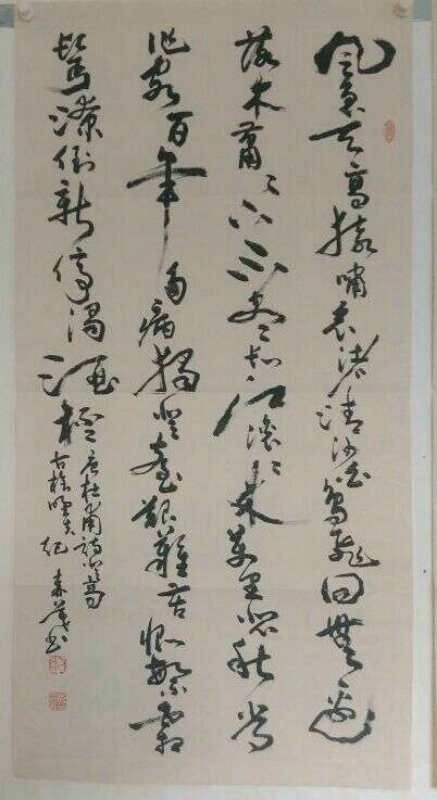 風急天高猿嘯哀渚清沙白鳥飛回無邊
落木蕭〻下不盡長江滾〻來萬里悲秋常
作客百年多病獨登臺艱難苦恨繁霜
鬢潦倒新停濁酒杯
唐杜甫詩登高